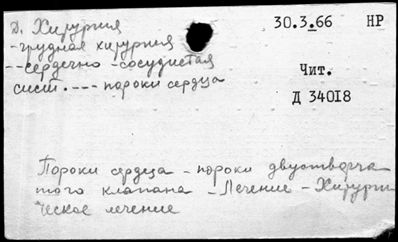 Д. Хирургия
30.3.66 НР
-грудная хирургия
--сердечно-сосудистая
Чит.
сист.---- пороки сердца
Д 34018
Пороки сердца - пороки двустворча
того клапана - Лечение - Хирурги
ческое лечение